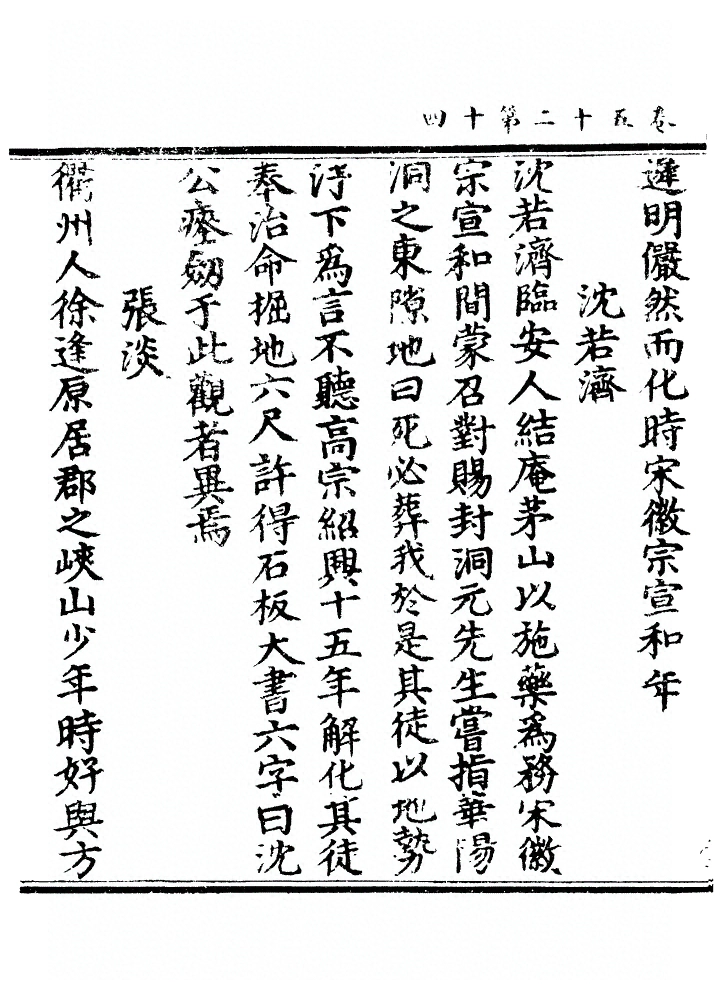 卷五十二第十四
遲明儼然而化時宋徽宗宣和年
沈若濟
沈若濟臨安人結庵茅山以施藥爲務宋徽
宗宣和間蒙召對賜封洞元先生嘗指華陽
洞之東隙地曰死必葬我於是其徒以地勢
汙下爲言不聽高宗紹興十五年解化其徒
奉治命掘地六尺許得石板大書六字曰沈
公瘞劒于此觀者異焉
張淡
衢州人徐逢原居郡之峽山少年時好與方